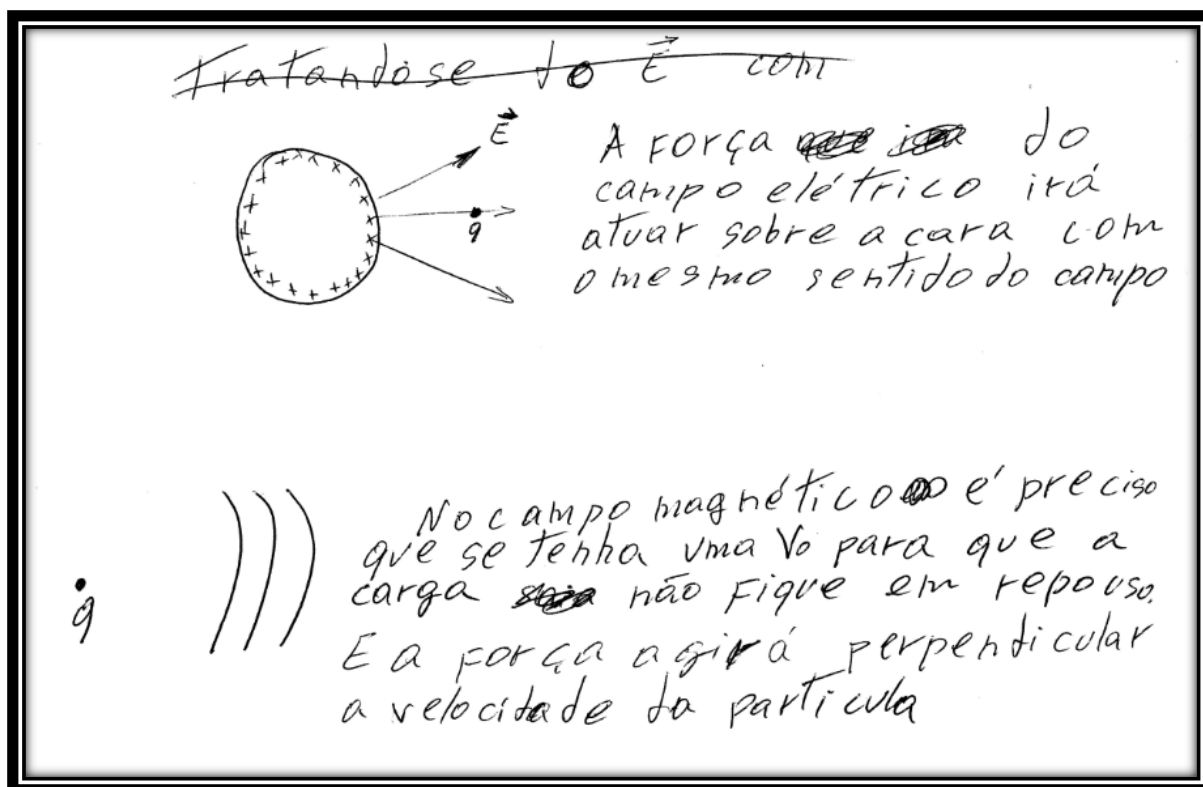 Tratandose do E⃗ com
E⃗
A Força do
campo elétrico irá
q
atuar sobre a cara com
o mesmo sentido do campo
No campo magnético é preciso
que se tenha uma Vo para que a
q
carga não Fique em repouso.
E a força agirá perpendicular
a velocidade da partícula